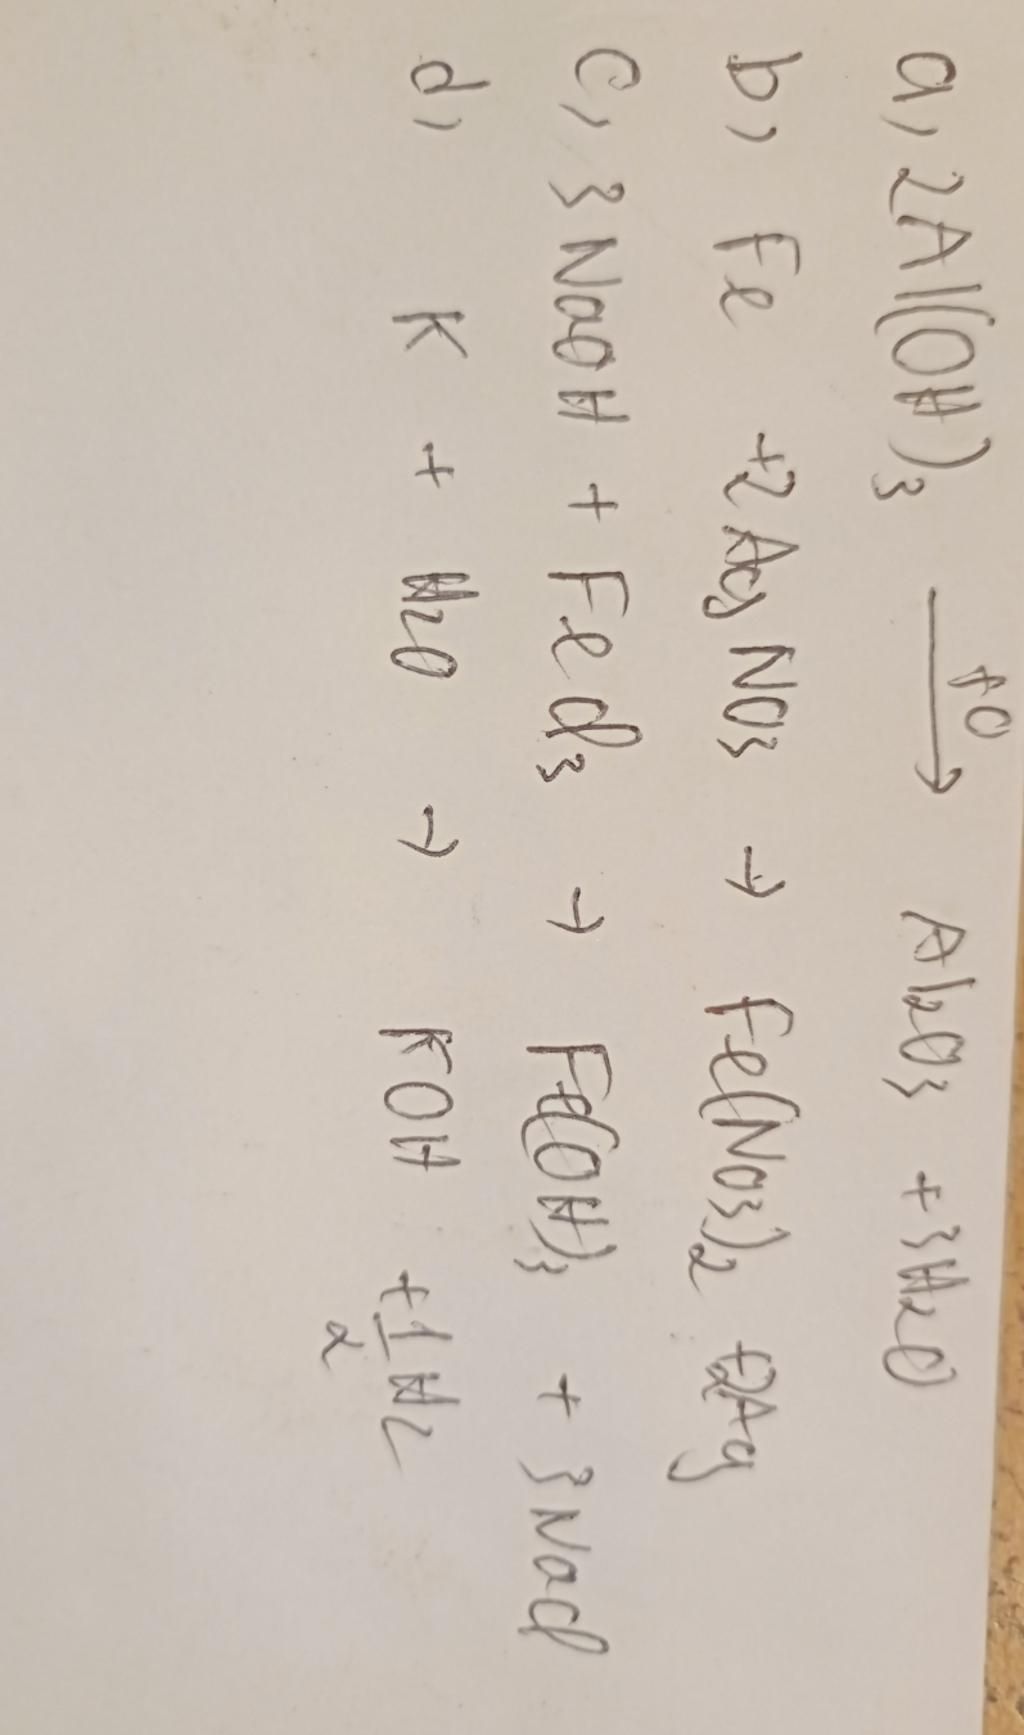 a, 2Al(OH)3 t0→ Al2O3 + 3H2O
b, Fe + 2AgNO3 → Fe(NO3)2 + 2Ag
c, 3NaOH + FeCl3 → Fe(OH)3 + 3NaCl
d, K + H2O → KOH + 1/2 H2